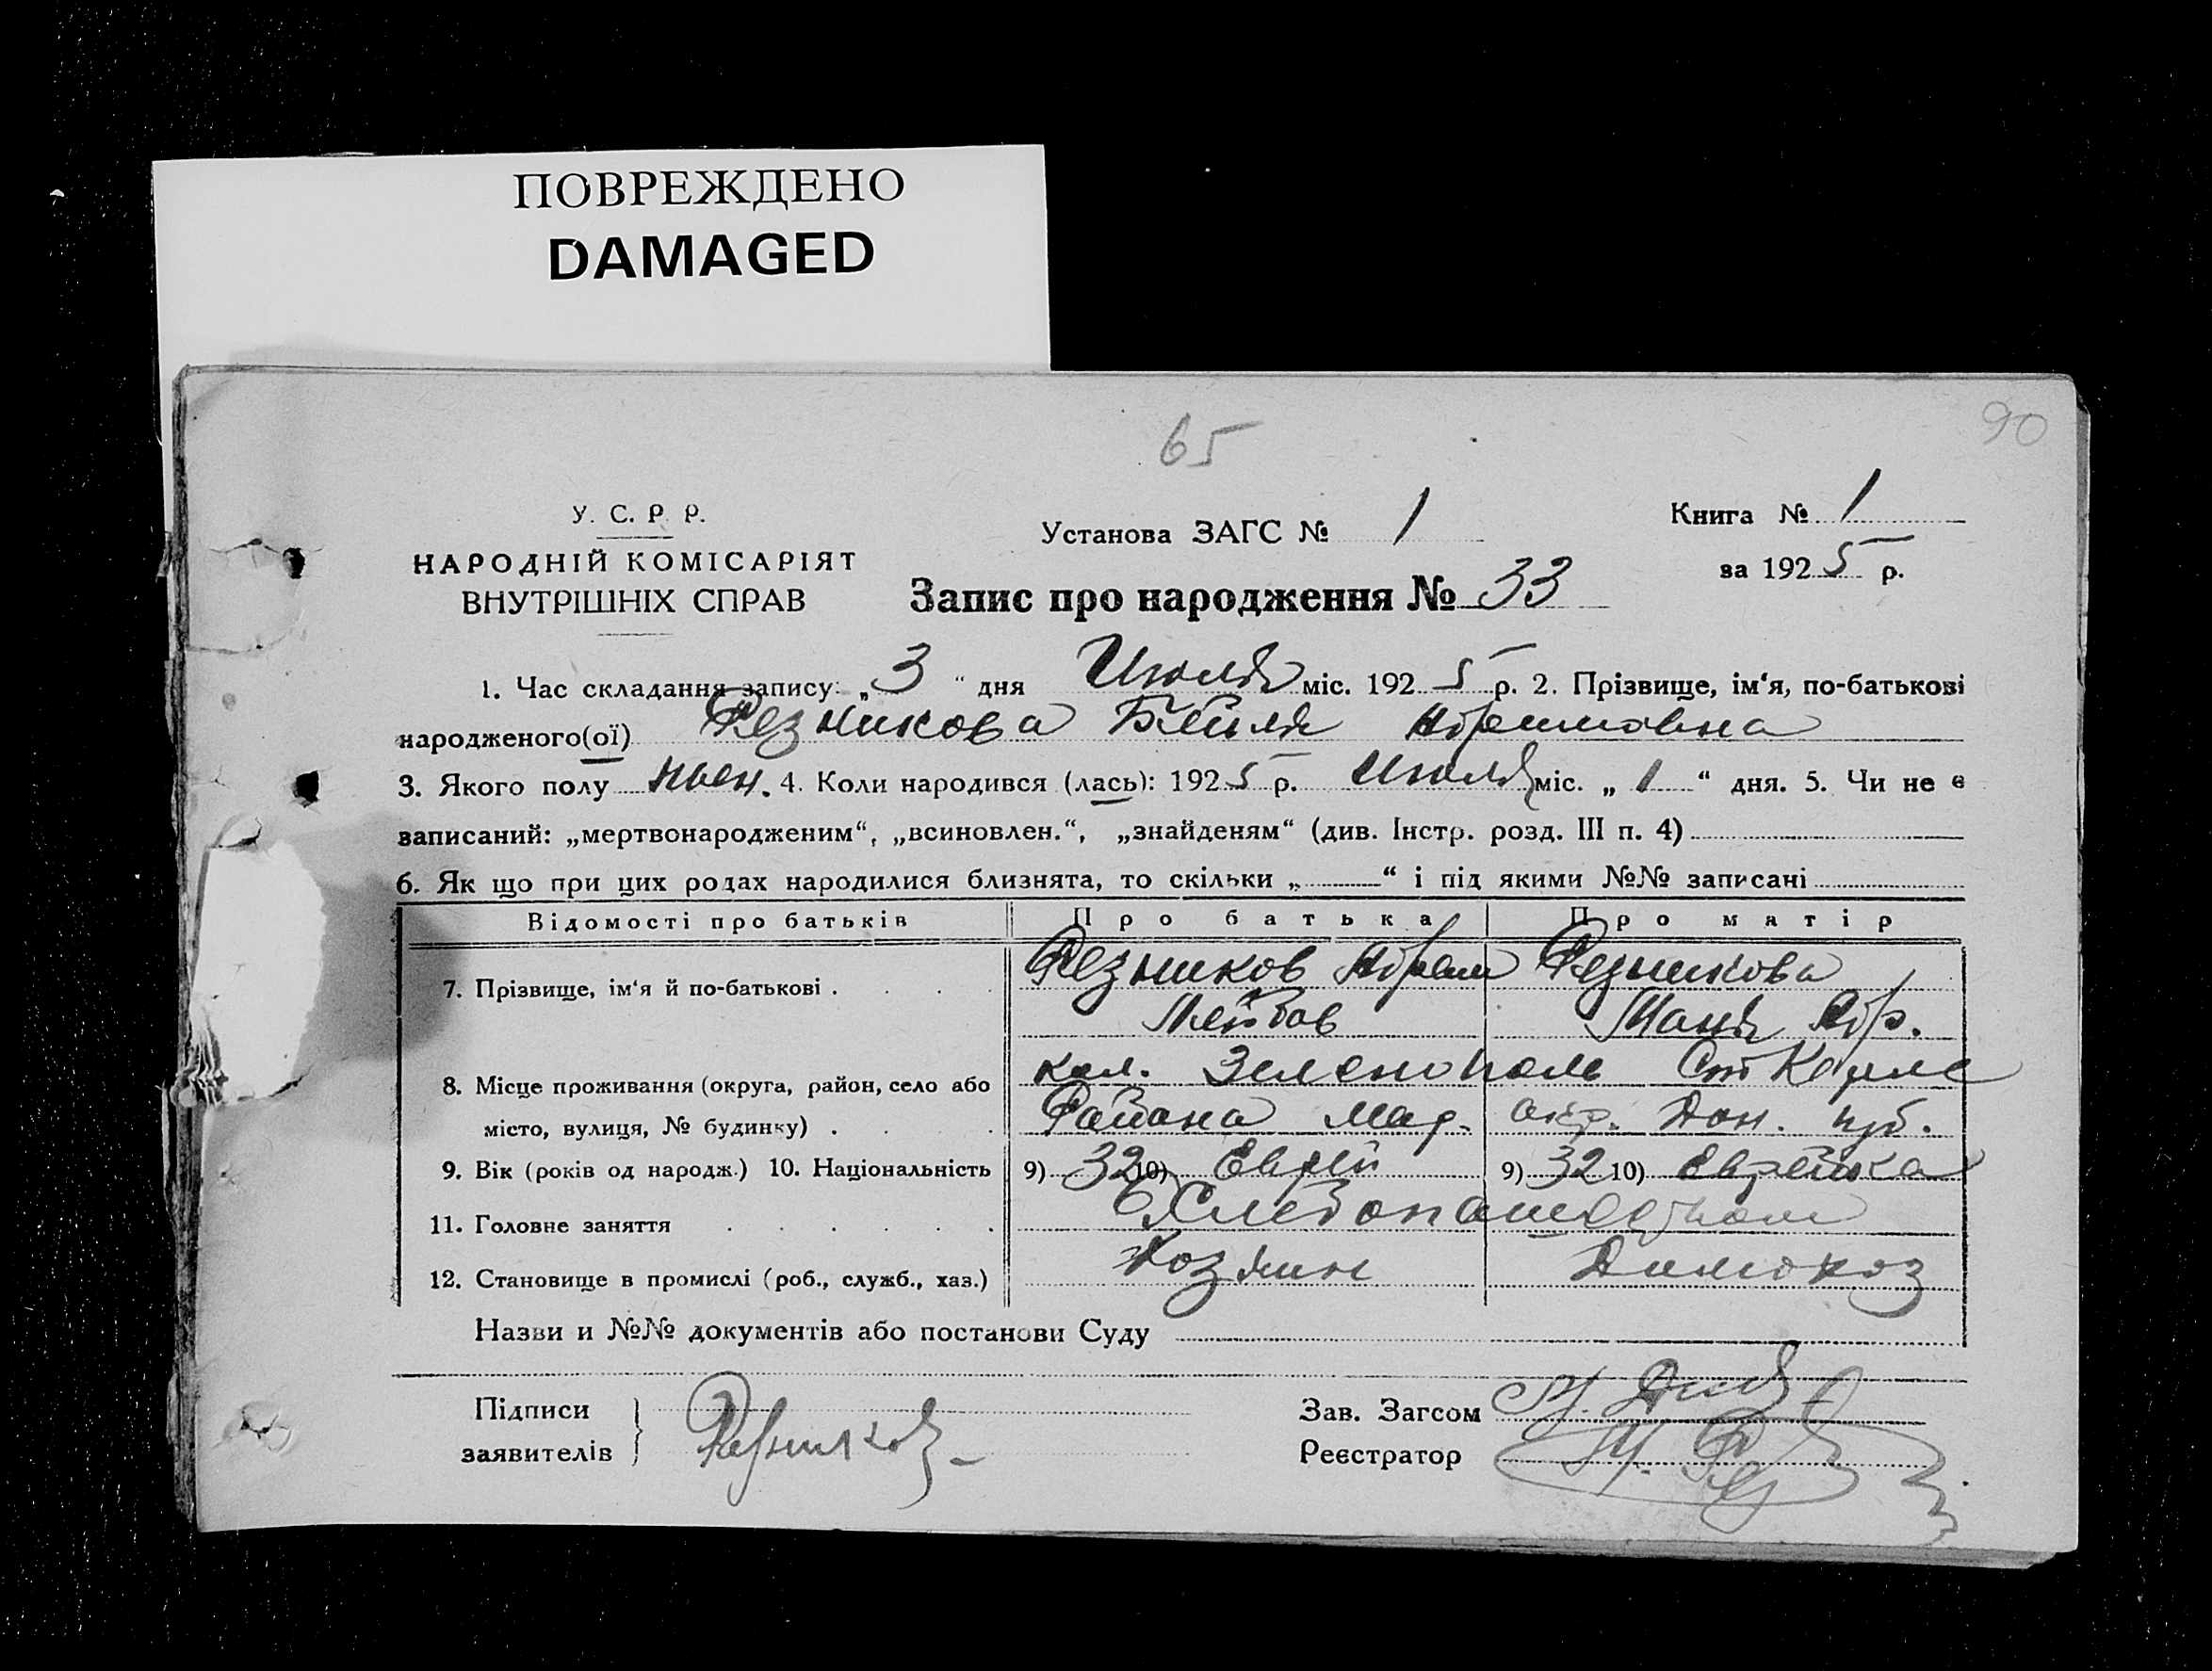 ПОВРЕЖДЕНО
DAMAGED
65
90
У. С. Р. Р.
НАРОДНІЙ КОМІСАРІЯТ
ВНУТРІШНІХ СПРАВ
Установа ЗАГС № 1
Книга № 1
за 1925 р.
Запис про народження № 33
1. Час складання запису: „3“ дня Июля міс. 1925 р. 2. Прізвище, ім‘я, по-батькові
народженого(ої) Резникова Бейля Абрамовна
3. Якого полу жен. 4. Коли народився (лась): 1925 р. Июля міс. „1“ дня. 5. Чи не є
записаний: „мертвонародженим“, „всиновлен.“, „знайденям“ (див. Інстр. розд. III п. 4)
6. Як що при цих родах народилися близнята, то скільки „ “ і під якими №№ записані
Відомості про батьків Про батька Про матір
7. Прізвище, ім‘я й по-батькові . Резников Абрам Резникова
Лейбов Маня Абр.
8. Місце проживання (округа, район, село або кол. Зеленополь
місто, вулиця, № будинку) . Района Мар. окр. Дон. губ.
9. Вік (років од народж.) 10. Національність 9) 32 10) Еврей 9) 32 10) Еврейка
11. Головне заняття Хлебопашеством
12. Становище в промислі (роб., служб., хаз.) Хозяин Домохоз
Назви и №№ документів або постанови Суду
Підписи
заявителів Резников
Зав. Загсом
Реєстратор